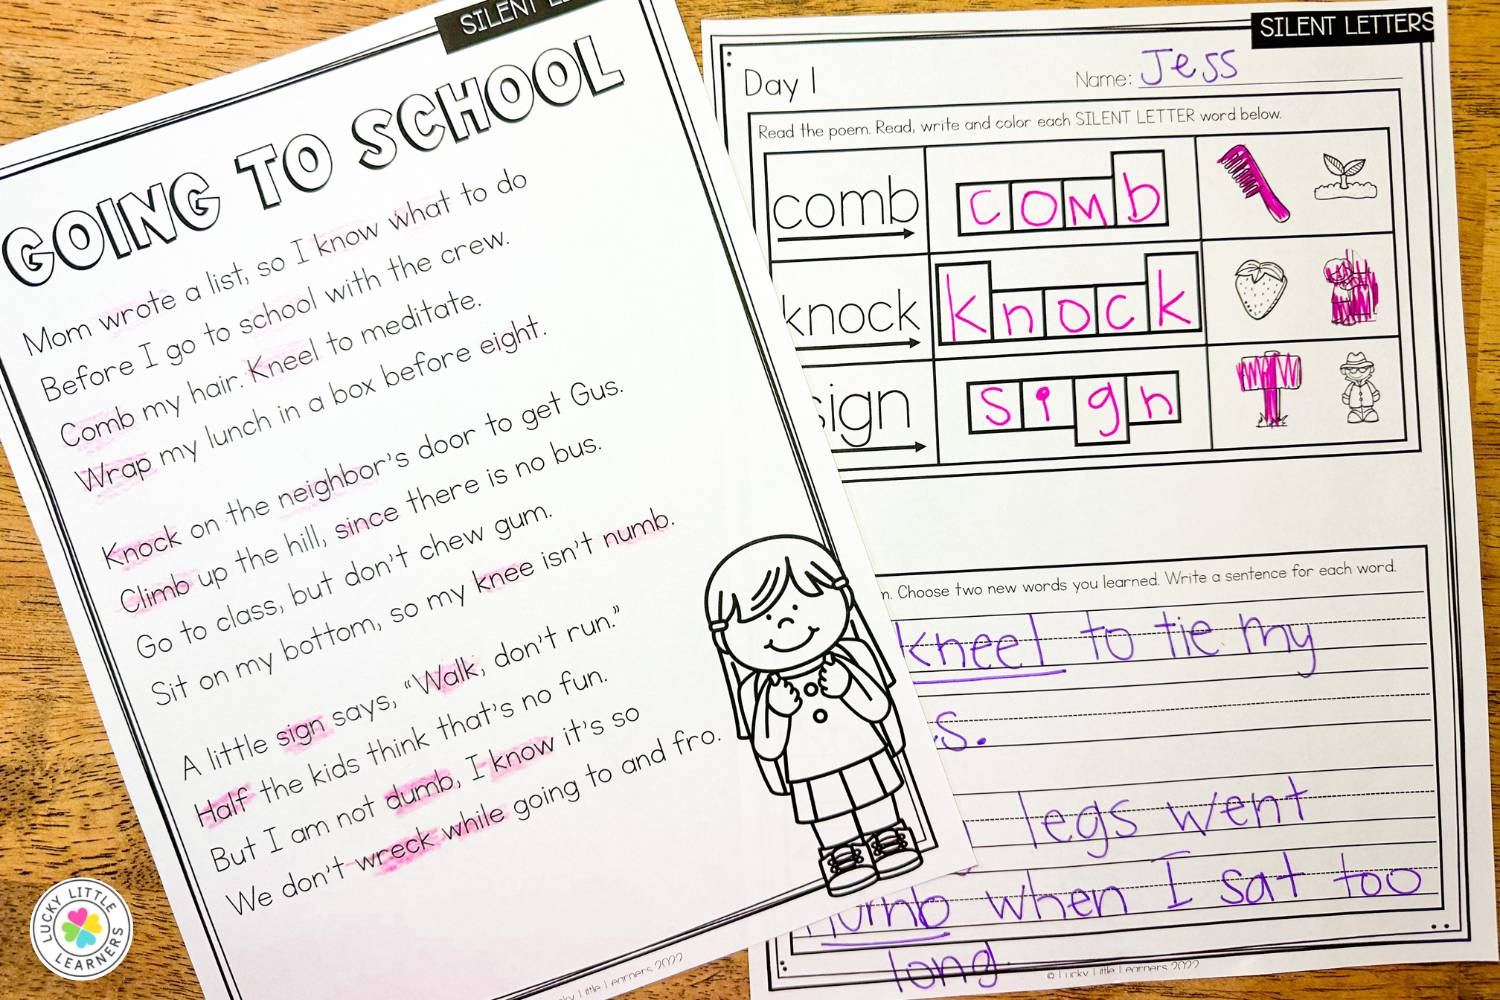 SILENT
GOING TO SCHOOL
Mom wrote a list, so I know what to do
Before I go to school with the crew.
Comb my hair. Kneel to meditate.
Wrap my lunch in a box before eight.
Knock on the neighbor's door to get Gus.
Climb up the hill, since there is no bus.
Go to class, but don't chew gum.
Sit on my bottom, so my knee isn't numb.
A little sign says, "Walk, don't run."
Half the kids think that's no fun.
But I am not dumb, I know it's so
We don't wreck while going to and fro.
Little Learners 2022
LUCKY LITTLE LEARNERS
SILENT LETTERS
Day 1
Name: Jess
Read the poem. Read, write and color each SILENT LETTER word below.
comb comb
knock knock
sign sign
Choose two new words you learned. Write a sentence for each word.
kneel to tie my
s.
legs went
numb when I sat too
long
© Lucky Little Learners 2022